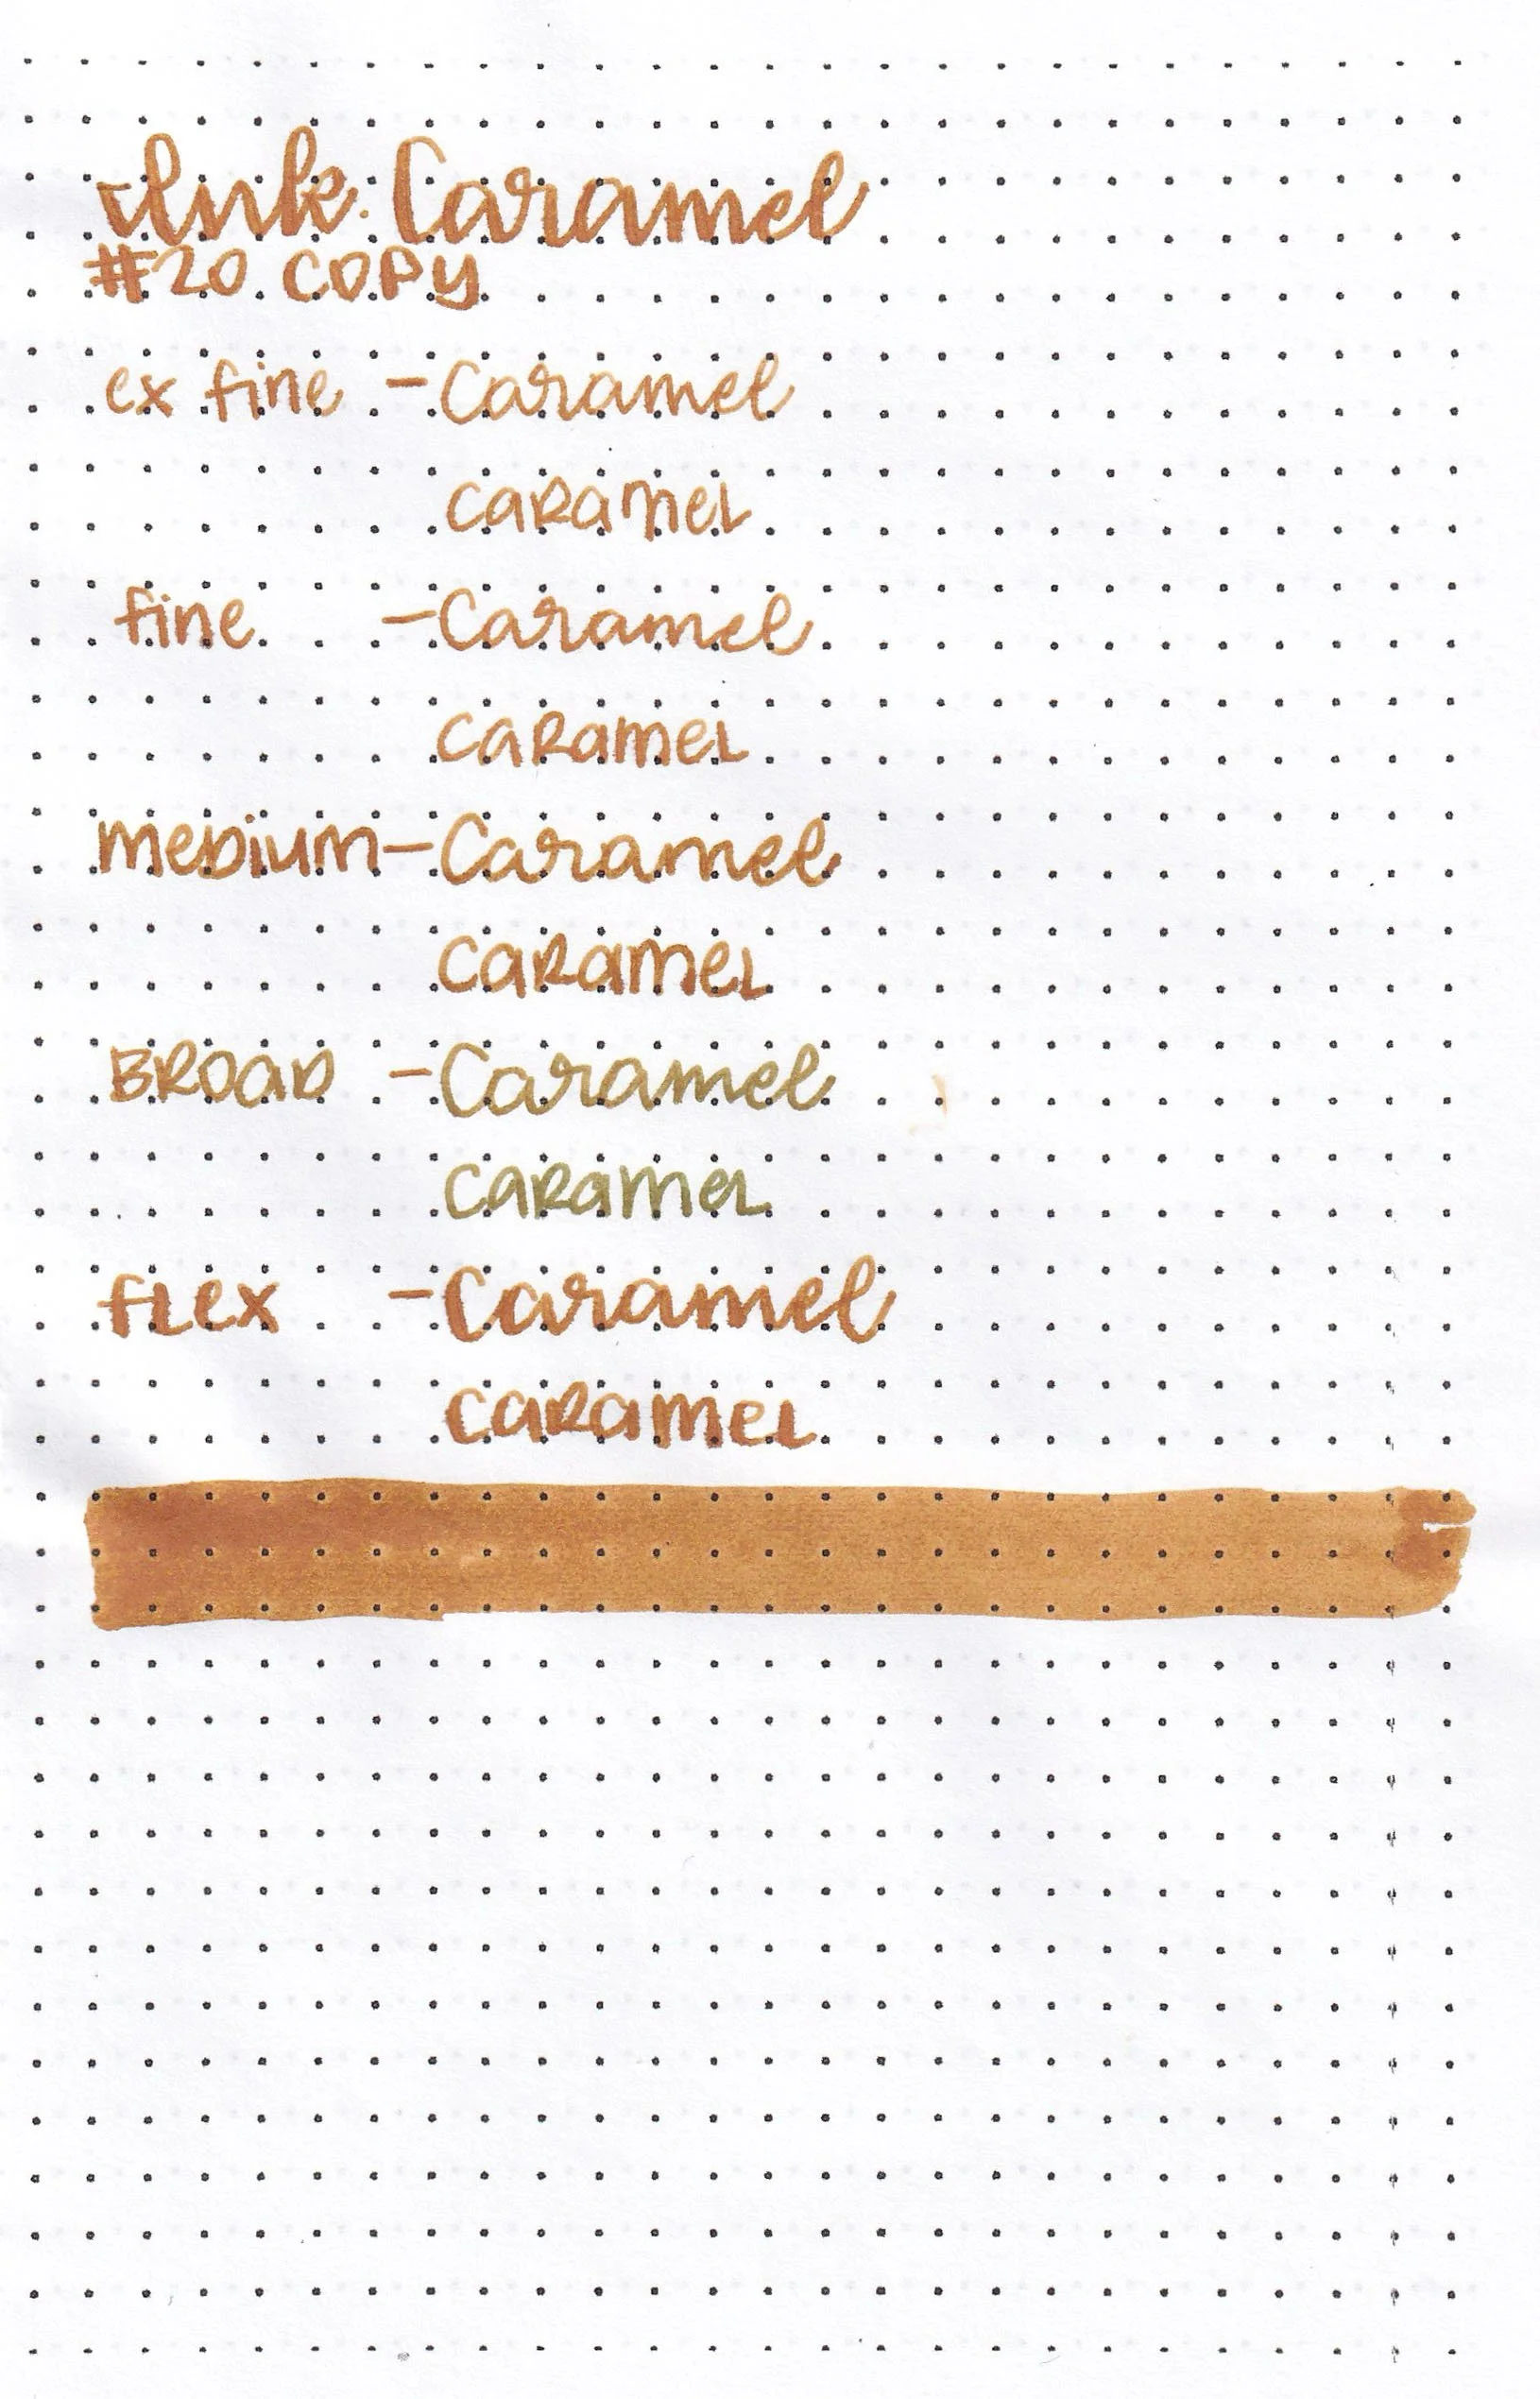 Ink: Caramel
#20 COPY
ex fine - Caramel
CARAMEL
fine - Caramel
CARAMEL
MEDIUM - Caramel
CARAMEL
BROAD - Caramel
CARAMEL
FLEX - Caramel
CARAMEL